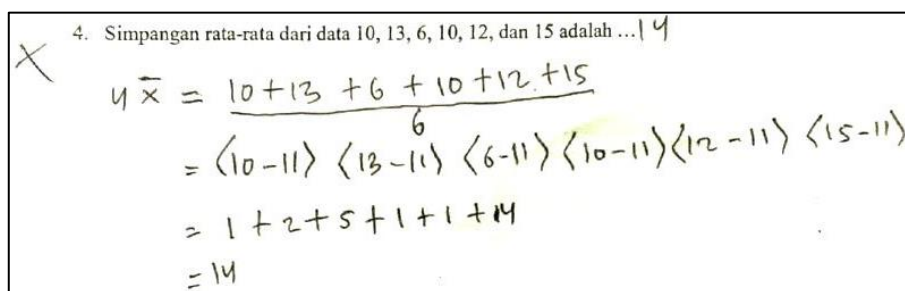 X 4. Simpangan rata-rata dari data 10, 13, 6, 10, 12, dan 15 adalah ...14
4 x̄ = 10+13+6+10+12+15
6
= <10-11> <13-11> <6-11> <10-11> <12-11> <15-11>
= 1+2+5+1+1+14
= 14